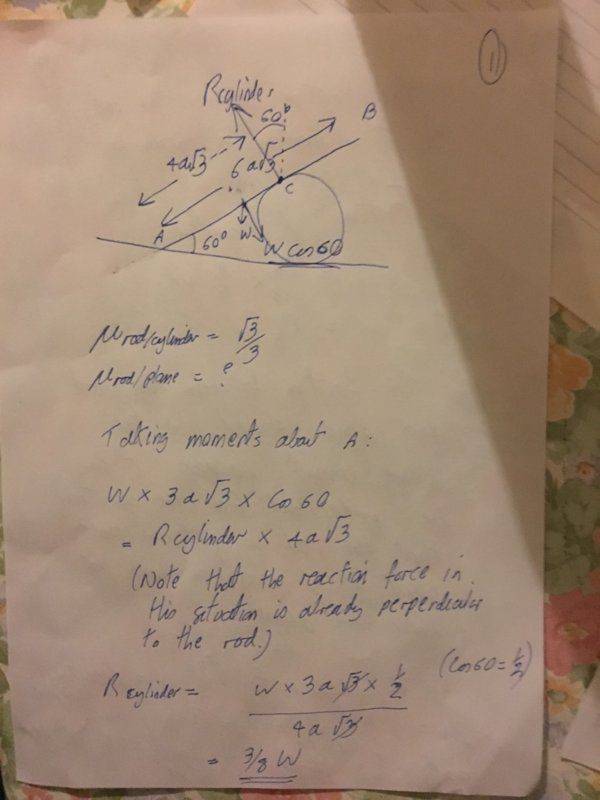 11
Rcylinder
60°
B
4a√3
6a√3
C
A
60°
W
W cos60
μrod/cylinder = √3/3
μrod/plane = ?
Taking moments about A:
W × 3a√3 × Cos 60
= Rcylinder × 4a√3
(Note that the reaction force in
this situation is already perpendicular
to the rod.)
Rcylinder = W × 3a√3 × 1/2 / 4a√3 (Cos60 = 1/2)
= 3/8 W